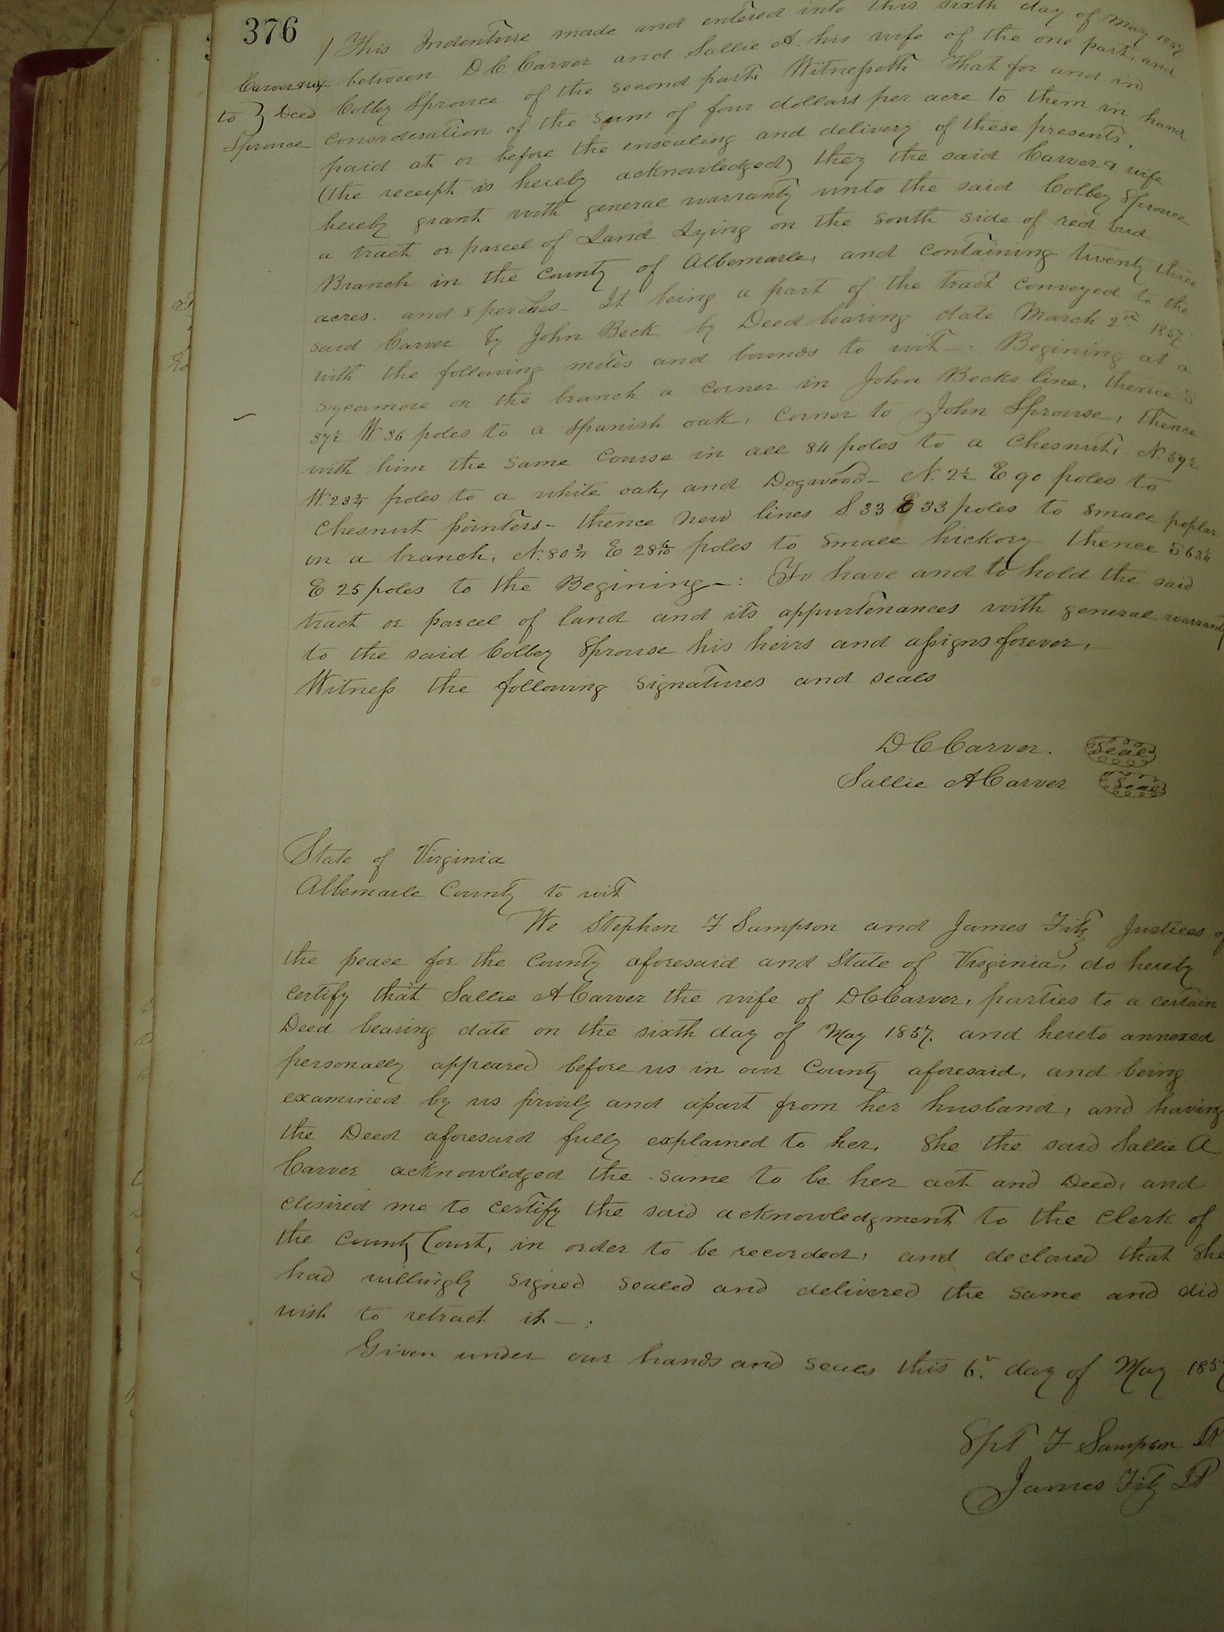 376
This Indenture made and entered into this sixth day of May 1857
Carver & ux between D C Carver and Sallie A. his wife of the one part, and
to } Deed Colby Sprouce of the second part. Witnesseth That for and in
Sprouce consideration of the sum of four dollars per acre to them in hand
paid at or before the ensealing and delivery of these presents.
(the receipt is hereby acknowledged) they the said Carver & wife
hereby grant with general warranty unto the said Colbey Sprouce
a tract or parcel of Land Lying on the south side of red bud
Branch in the County of Albemarle, and containing twenty three
acres. and 8 perches - It being a part of the tract conveyed to the
said Carver by John Beck by Deed bearing date March 2nd 1857.
with the following metes and bounds to wit -: Begining at a
sycamore on the branch a corner in John Becks line, thence S
37½ W 36 poles to a spanish oak, corner to John Sprouse, thence
with him the same course in all 84 poles to a chesnut, - N. 59½
W. 23¾ poles to a white oak, and Dogwood - N. 2½ E 90 poles to
chesnut pointers - thence new lines S. 33 E 33 poles to small poplar
on a branch, N. 80¾ E 28 6/10 poles to small hickory - thence S 63¼
E 25 poles to the Begining -: To have and to hold the said
tract or parcel of land and its appurtenances with general warranty
to the said Colbey Sprouse his heirs and assigns forever,
Witness the following signatures and seals
D C Carver. Seal
Sallie A Carver Seal
State of Virginia
Albemarle County to wit
We Stephen F Sampson and James Fitz Justices of
the peace for the County aforesaid and State of Virginia, do hereby
certify that Sallie A Carver the wife of D C Carver, parties to a certain
Deed bearing date on the sixth day of May 1857. and hereto annexed
personally appeared before us in our County aforesaid, and being
examined by us privily and apart from her husband, and having
the Deed aforesaid fully explained to her, She the said Sallie A
Carver acknowledged the same to be her act and Deed, and
desired me to certify the said acknowledgment to the Clerk of
the County Court, in order to be recorded, and declared that she
had willingly signed sealed and delivered the same and did
wish to retract it -:
Given under our hands and seals this 6th day of May 1857
Spt F Sampson JP
James Fitz JP